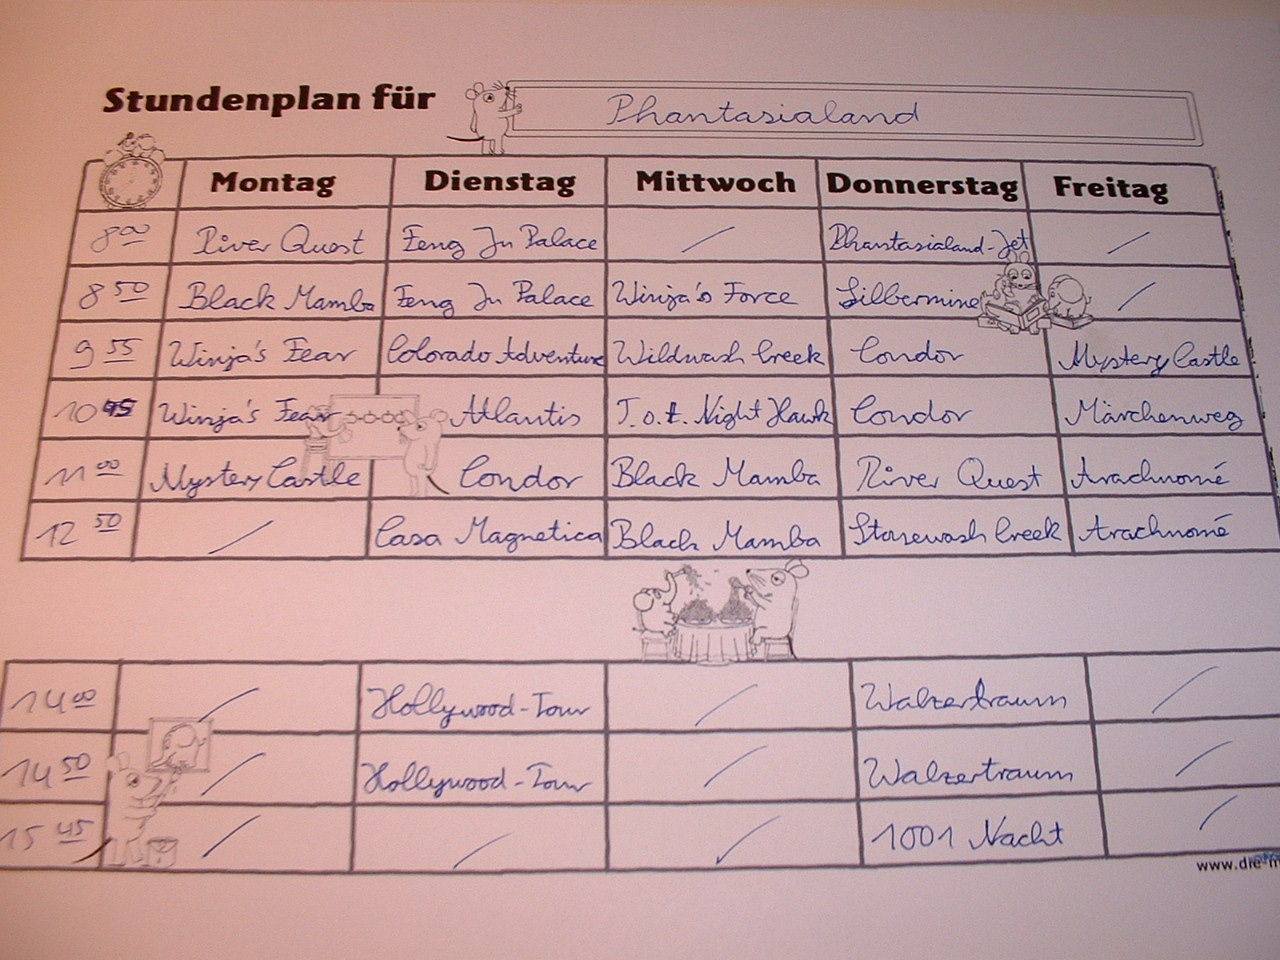 Stundenplan für Phantasialand
Montag Dienstag Mittwoch Donnerstag Freitag
8 00 River Quest Feng Ju Palace / Phantasialand-Jet /
8 50 Black Mamba Feng Ju Palace Winja's Force Silbermine /
9 55 Winja's Fear Colorado Adventure Wildwash Creek Condor Mystery Castle
10 45 Winja's Fear Atlantis T.o.t. Night Hawk Condor Märchenweg
11 00 Mystery Castle Condor Black Mamba River Quest Arachnomé
12 50 / Casa Magnetica Black Mamba Stonewash Creek Arachnomé
14 00 / Hollywood-Tour / Walzertraum /
14 50 / Hollywood-Tour / Walzertraum /
15 45 / / / 1001 Nacht /
www.die-m